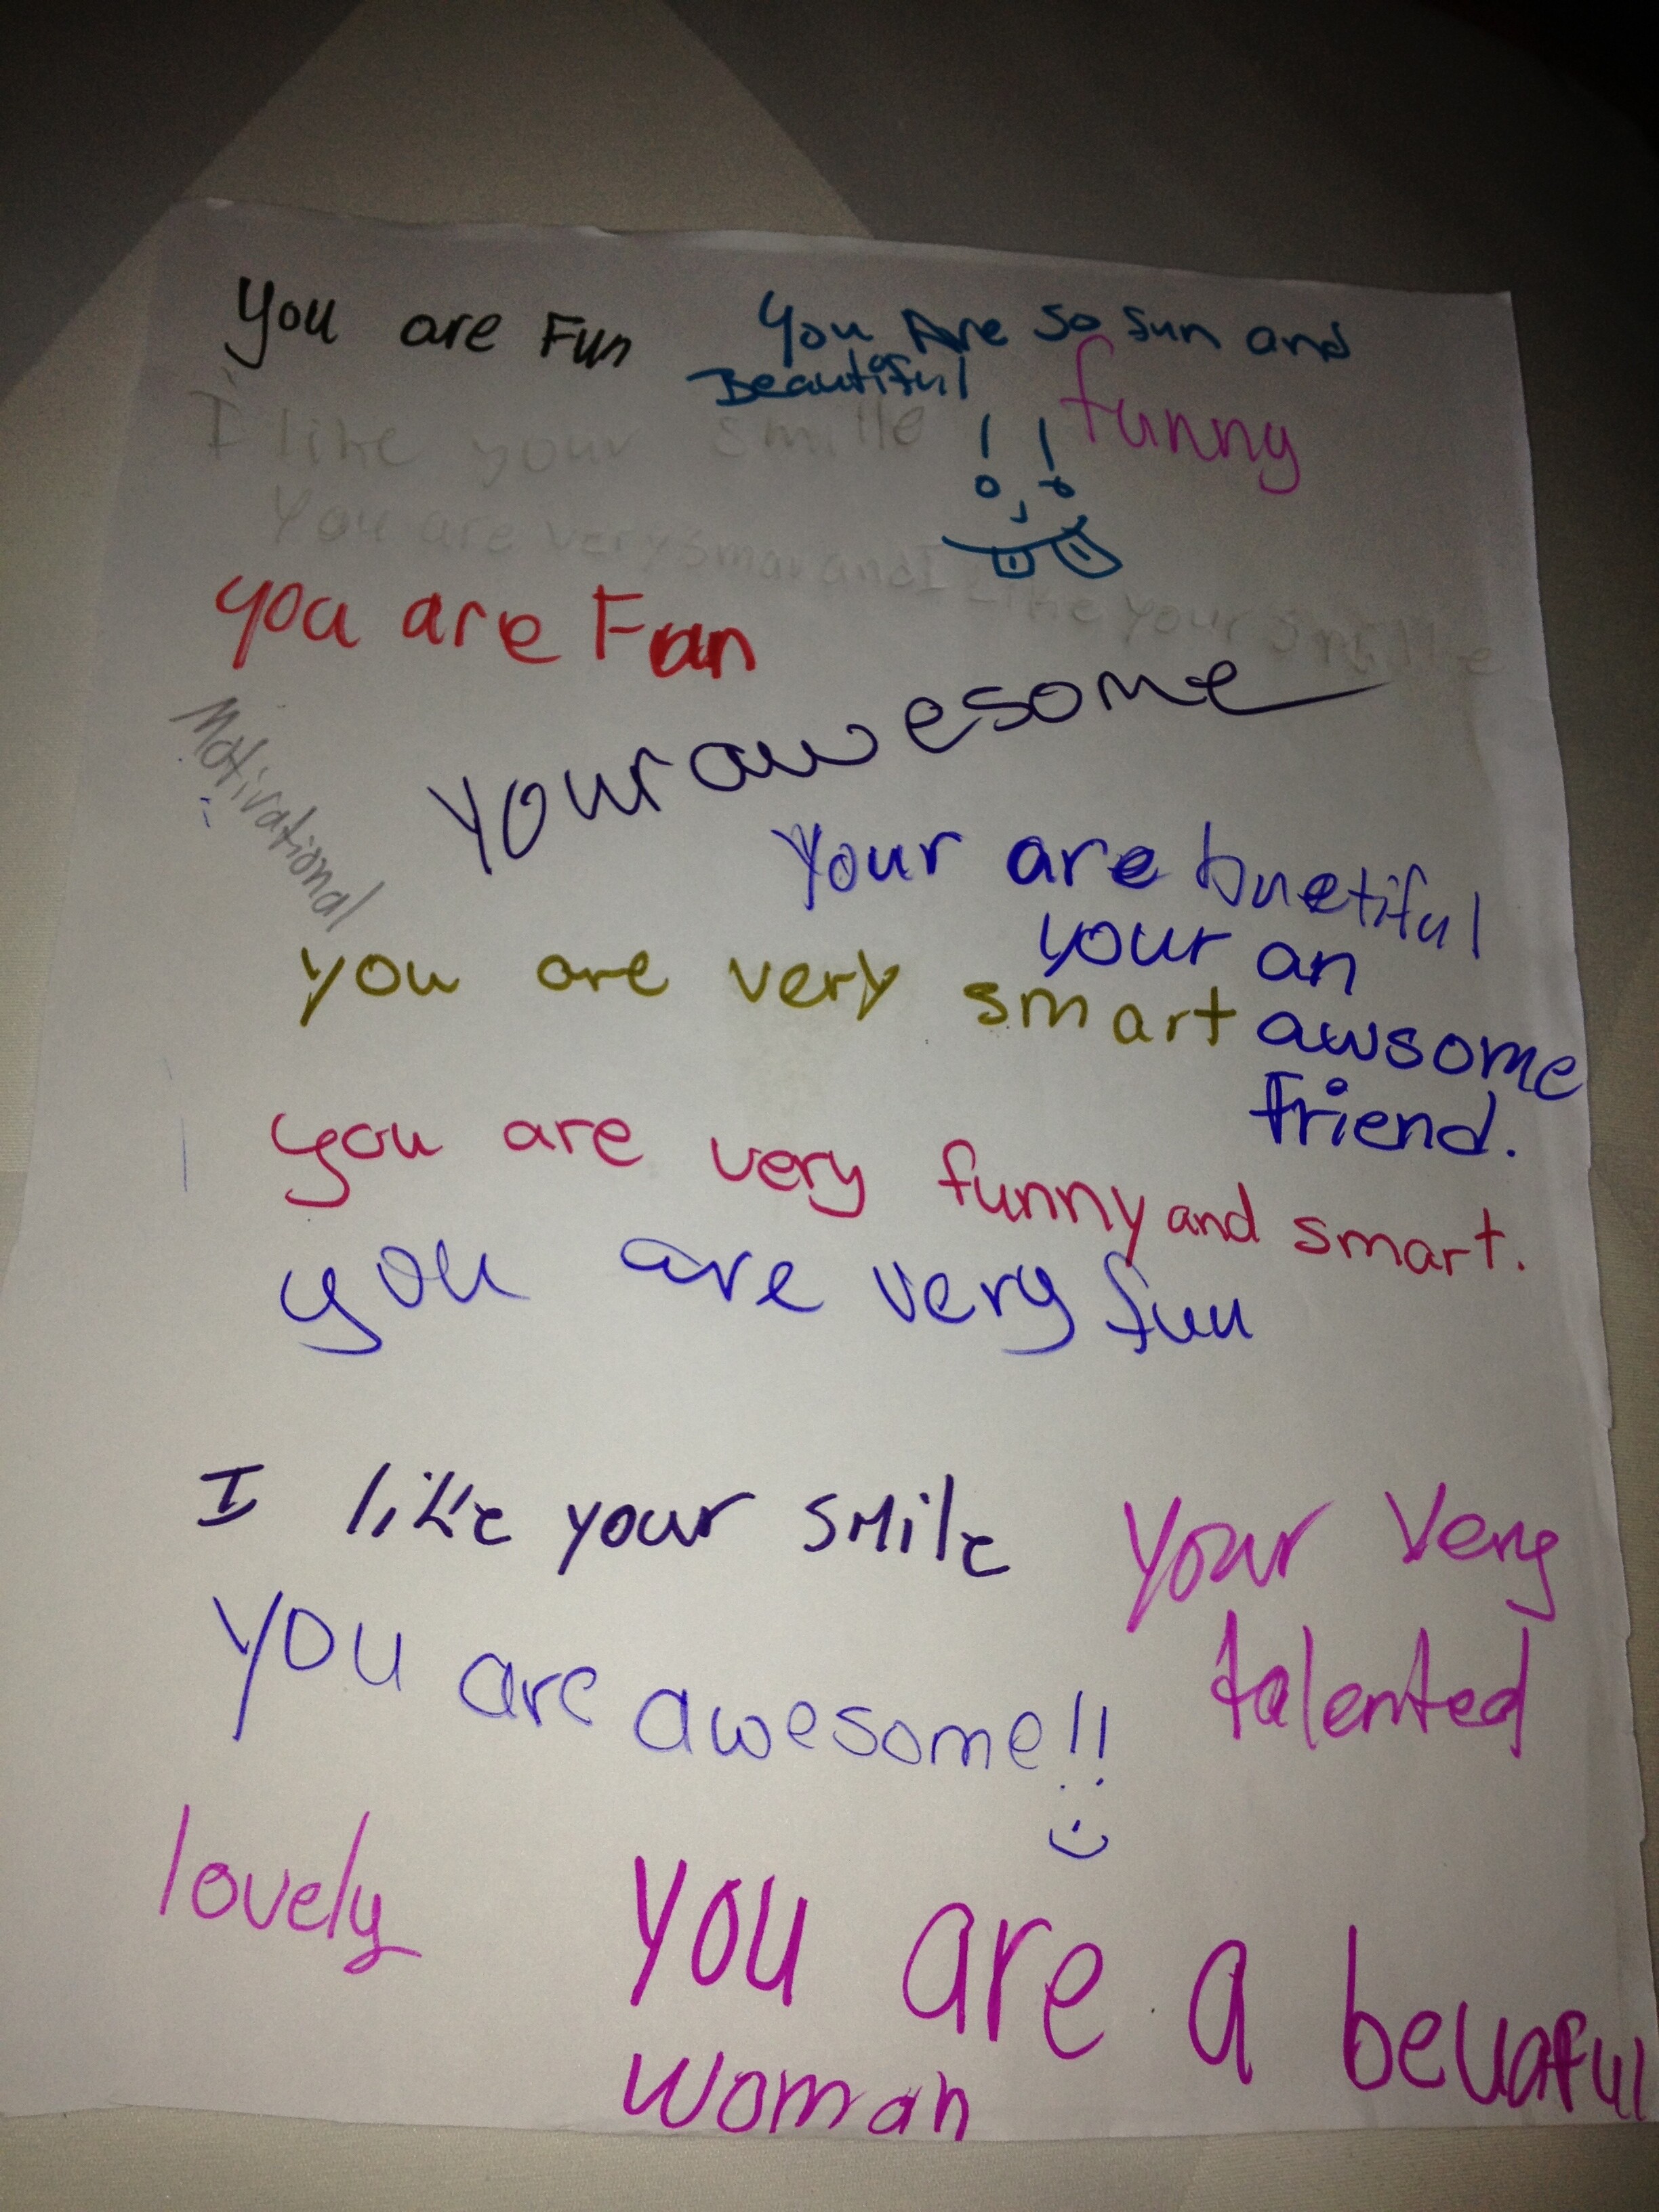 You are Fun
You Are So Sun and
Beautiful
funny
I like your smille
You are very smar and I Like your smille
you are Fun
Your awesome
Motivational
Your are buetiful
your an
awsome
friend.
you are very smart
you are very funny and smart.
you are very fun
I like your smile
Your Very
talented
You are awesome!!
lovely
You are a bevaful
woman